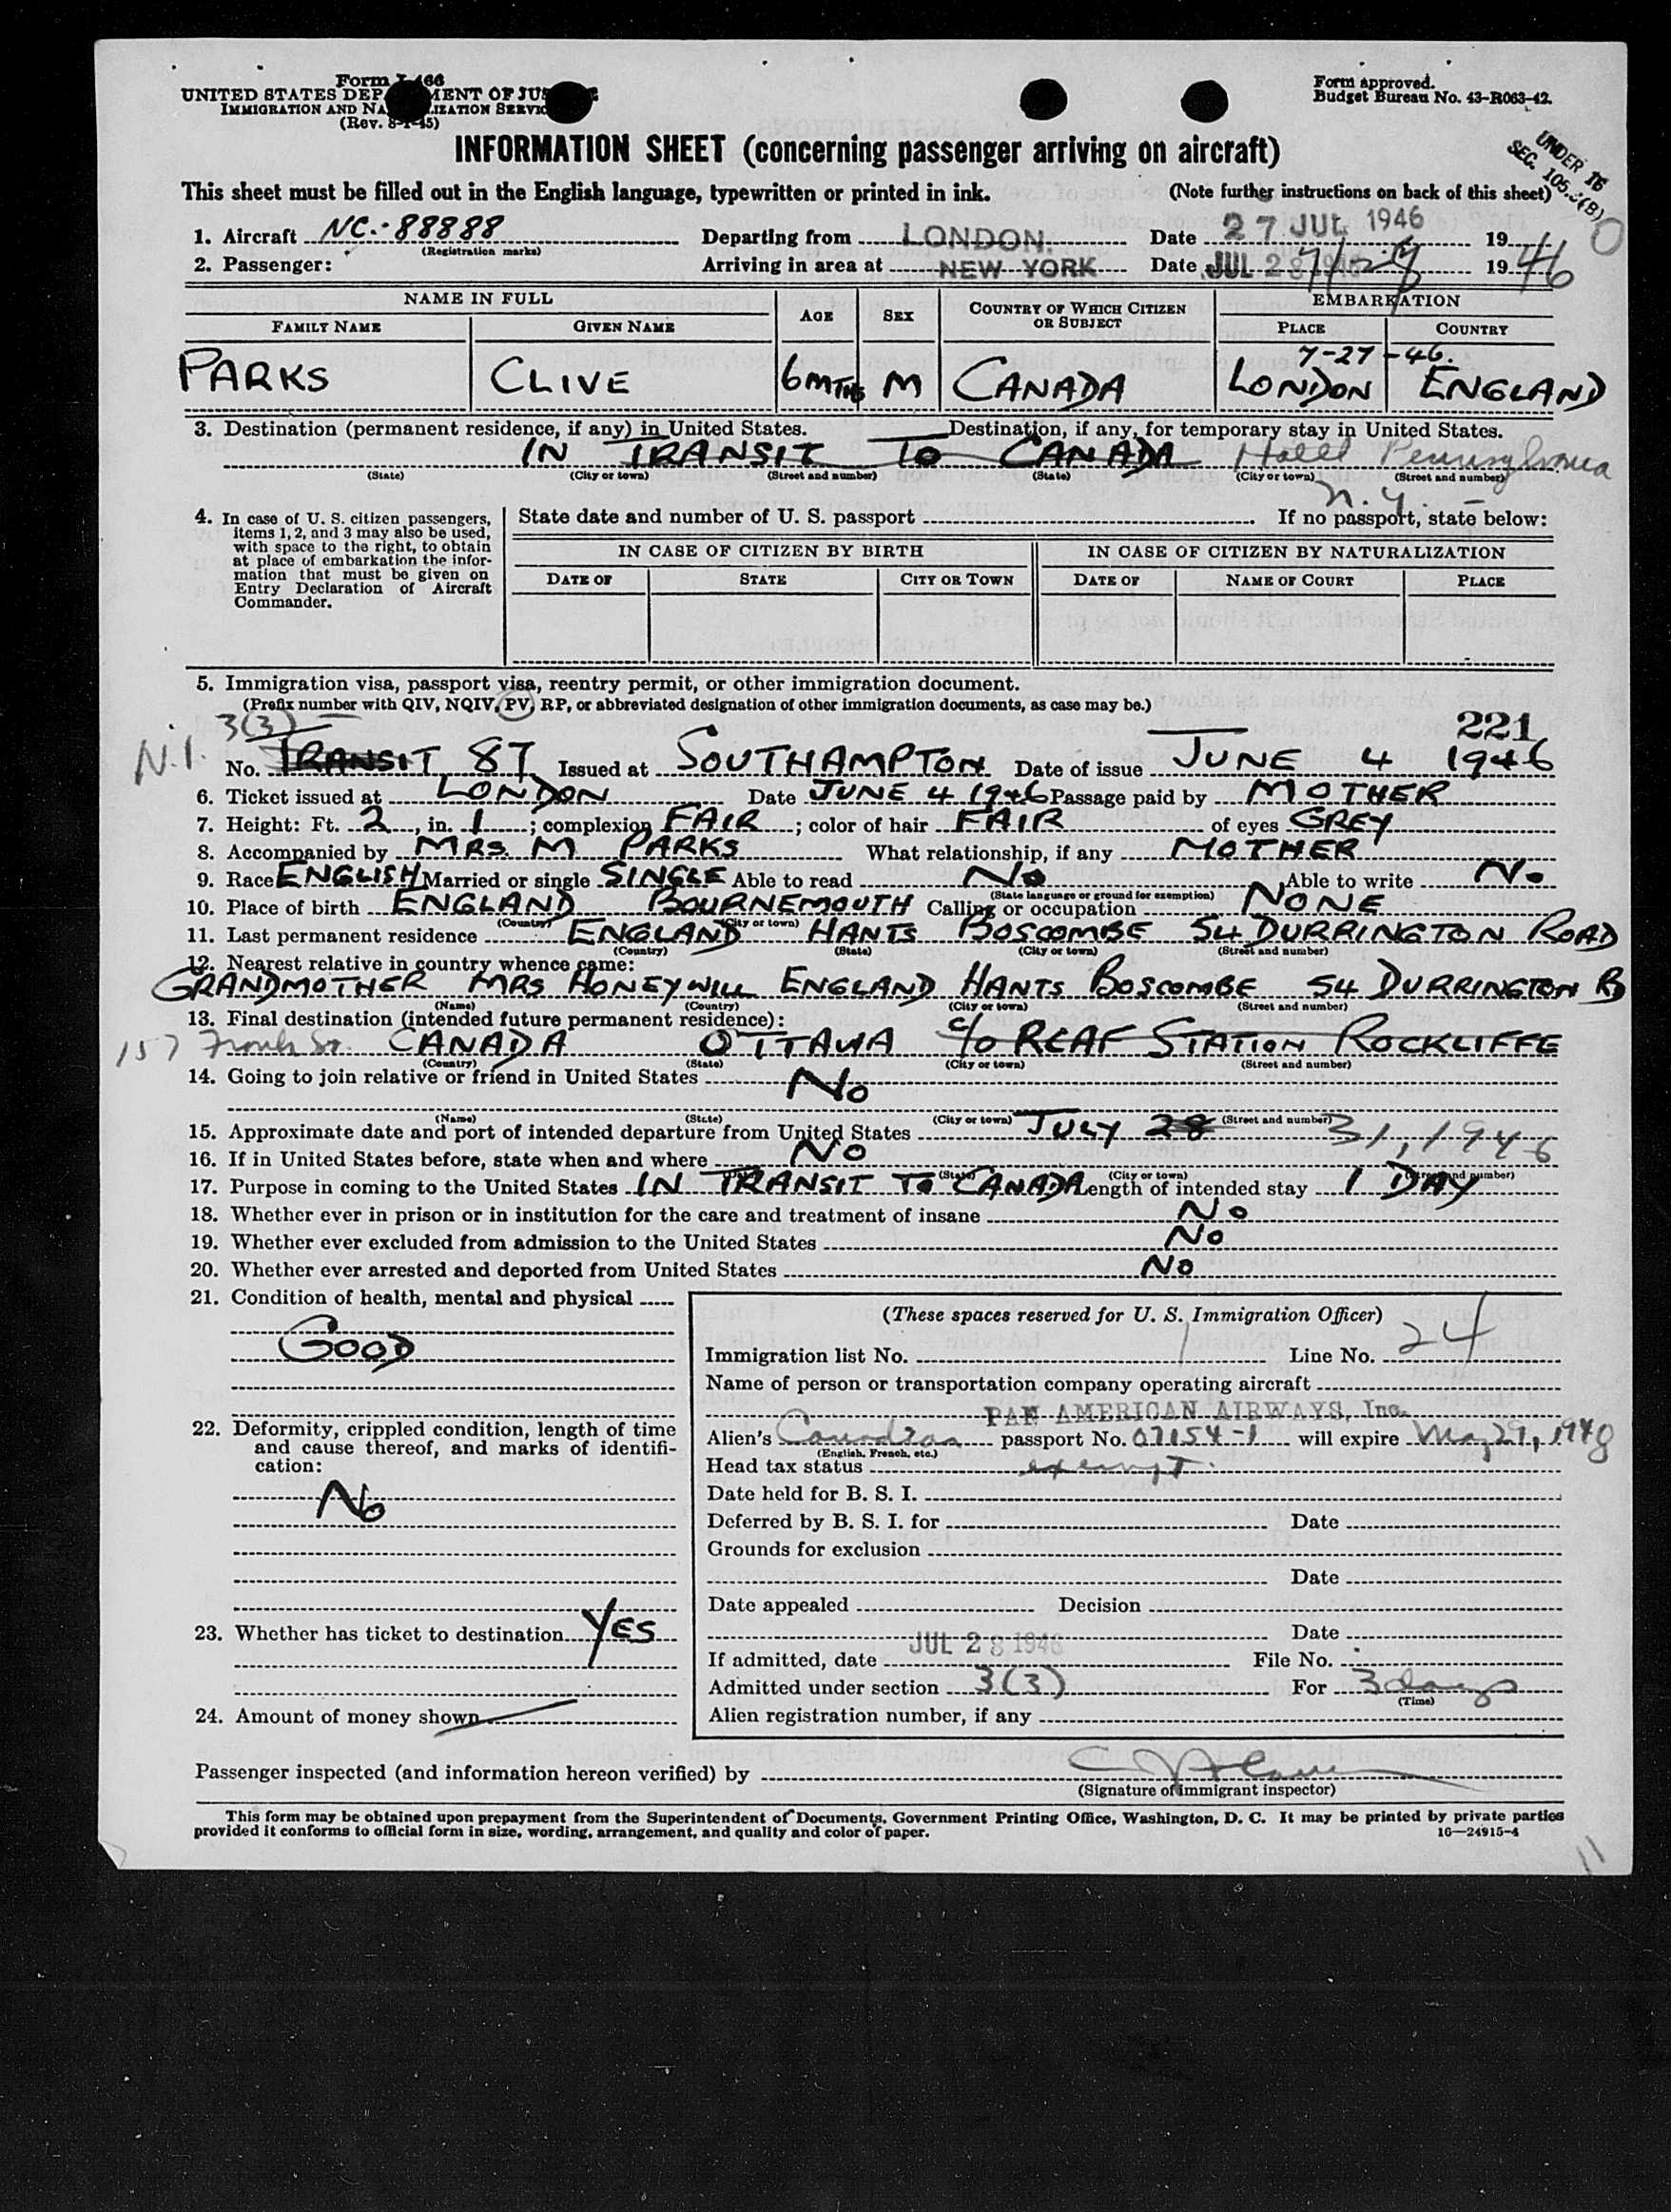 Form I-466
UNITED STATES DEPARTMENT OF JUSTICE
IMMIGRATION AND NATURALIZATION SERVICE
(Rev. 8-1-45)
Form approved.
Budget Bureau No. 43-R063-42.
INFORMATION SHEET (concerning passenger arriving on aircraft)
UNDER 16
SEC. 105.3(B)
This sheet must be filled out in the English language, typewritten or printed in ink. (Note further instructions on back of this sheet)
1. Aircraft NC.-88888 Departing from LONDON. Date 27 JUL 1946 1946
(Registration marks)
2. Passenger: Arriving in area at NEW YORK Date JUL 28 1946 1946
NAME IN FULL AGE SEX COUNTRY OF WHICH CITIZEN OR SUBJECT EMBARKATION
FAMILY NAME GIVEN NAME PLACE COUNTRY
7-27-46.
PARKS CLIVE 6MTHS M CANADA LONDON ENGLAND
3. Destination (permanent residence, if any) in United States. Destination, if any, for temporary stay in United States.
IN TRANSIT TO CANADA Hotel Pennsylvania
(State) (City or town) (Street and number) (State) (City or town) (Street and number)
N.Y.
4. In case of U. S. citizen passengers, items 1, 2, and 3 may also be used, with space to the right, to obtain at place of embarkation the information that must be given on Entry Declaration of Aircraft Commander.
State date and number of U. S. passport If no passport, state below:
IN CASE OF CITIZEN BY BIRTH IN CASE OF CITIZEN BY NATURALIZATION
DATE OF STATE CITY OR TOWN DATE OF NAME OF COURT PLACE
5. Immigration visa, passport visa, reentry permit, or other immigration document.
(Prefix number with QIV, NQIV, PV, RP, or abbreviated designation of other immigration documents, as case may be.)
3(3) 221
N.I. No. TRANSIT 87 Issued at SOUTHAMPTON Date of issue JUNE 4 1946
6. Ticket issued at LONDON Date JUNE 4 1946 Passage paid by MOTHER
7. Height: Ft. 2, in. 1; complexion FAIR; color of hair FAIR of eyes GREY
8. Accompanied by MRS. M PARKS What relationship, if any MOTHER
9. Race ENGLISH Married or single SINGLE Able to read No Able to write No
(State language or ground for exemption)
10. Place of birth ENGLAND BOURNEMOUTH Calling or occupation NONE
(Country) (City or town)
11. Last permanent residence ENGLAND HANTS BOSCOMBE 54 DURRINGTON ROAD
(Country) (State) (City or town) (Street and number)
12. Nearest relative in country whence came:
GRANDMOTHER MRS HONEYWILL ENGLAND HANTS BOSCOMBE 54 DURRINGTON RD
(Name) (Country) (City or town) (Street and number)
13. Final destination (intended future permanent residence):
157 Front St. CANADA OTTAWA c/o RCAF STATION ROCKLIFFE
(Country) (State) (City or town) (Street and number)
14. Going to join relative or friend in United States No
(Name) (State) (City or town) (Street and number)
15. Approximate date and port of intended departure from United States JULY 28 31, 1946
16. If in United States before, state when and where No
(Date) (State) (City or town) (Street and number)
17. Purpose in coming to the United States IN TRANSIT TO CANADA Length of intended stay 1 DAY
18. Whether ever in prison or in institution for the care and treatment of insane No
19. Whether ever excluded from admission to the United States No
20. Whether ever arrested and deported from United States No
21. Condition of health, mental and physical
GOOD
22. Deformity, crippled condition, length of time and cause thereof, and marks of identification:
No
23. Whether has ticket to destination YES
24. Amount of money shown
(These spaces reserved for U. S. Immigration Officer)
Immigration list No. 1 Line No. 24
Name of person or transportation company operating aircraft
PAN AMERICAN AIRWAYS, Inc.
Alien's Canadian passport No. 07154-1 will expire May 29, 1948
(English, French, etc.)
Head tax status exempt
Date held for B. S. I.
Deferred by B. S. I. for Date
Grounds for exclusion
Date
Date appealed Decision
Date
If admitted, date JUL 28 1946 File No.
Admitted under section 3(3) For 3 days
(Time)
Alien registration number, if any
Passenger inspected (and information hereon verified) by
(Signature of immigrant inspector)
This form may be obtained upon prepayment from the Superintendent of Documents, Government Printing Office, Washington, D. C. It may be printed by private parties
provided it conforms to official form in size, wording, arrangement, and quality and color of paper. 16—24915-4
11